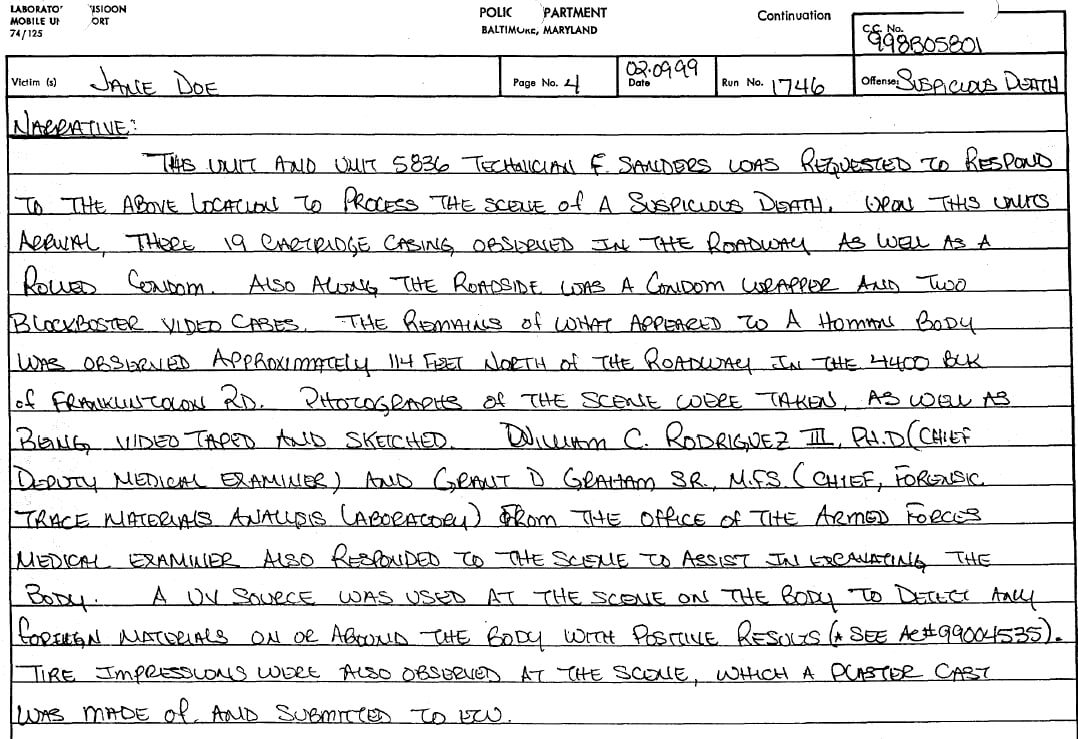 LABORATO VISIOON
MOBILE U ORT
74/125
POLIC PARTMENT
BALTIMORE, MARYLAND
Continuation
C.C. No.
998B05801
Victim (s) JANE DOE
Page No. 4
02.09.99
Date
Run No. 1746
Offense: SUSPICIOUS DEATH
NARRATIVE:
THIS UNIT AND UNIT 5836 TECHNICIAN F. SANDERS WAS REQUESTED TO RESPOND
TO THE ABOVE LOCATION TO PROCESS THE SCENE of A SUSPICIOUS DEATH. UPON THIS UNITS
ARRIVAL, THERE 19 CARTRIDGE CASING, OBSERVED IN THE ROADWAY AS WELL AS A
ROLLED CONDOM. ALSO ALONG THE ROADSIDE WAS A CONDOM WRAPPER AND TWO
BLOCKBOSTER VIDEO CASES. THE REMAINS of WHAT APPEARED TO A HOMAN BODY
WAS OBSERVED APPROXIMATELY 114 FEET NORTH of THE ROADWAY IN THE 4400 BLK
of FRANKLINTOLON RD. PHOTOGRAPHS of THE SCENE WERE TAKEN, AS WELL AS
BEING VIDEO TAPED AND SKETCHED. WILLIAM C. RODRIGUEZ III, PH.D (CHIEF
DEPUTY MEDICAL EXAMINER) AND GRANT D GRAHAM SR., M.F.S. (CHIEF, FORENSIC
TRACE MATERIALS ANALYSIS LABORATORY) FROM THE OFFICE of THE ARMED FORCES
MEDICAL EXAMINER ALSO RESPONDED TO THE SCENE TO ASSIST IN EXCAVATING THE
BODY. A UV SOURCE WAS USED AT THE SCENE ON THE BODY TO DETECT ANY
FOREIGN MATERIALS ON OR AROUND THE BODY WITH POSITIVE RESULTS (* SEE AC#99004535).
TIRE IMPRESSIONS WERE ALSO OBSERVED AT THE SCENE, WHICH A PLASTER CAST
WAS MADE of. AND SUBMITTED TO ECU.